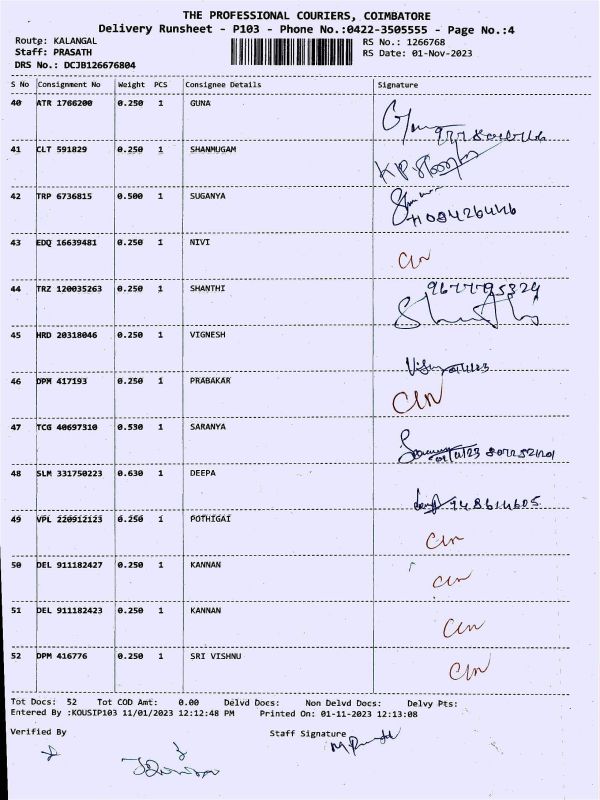 THE PROFESSIONAL COURIERS, COIMBATORE
Delivery Runsheet - P103 - Phone No.:0422-3505555 - Page No.:4
Route: KALANGAL RS No.: 1266768
Staff: PRASATH RS Date: 01-Nov-2023
DRS No.: DCJB126676804
S No Consignment No Weight PCS Consignee Details Signature
40 ATR 1766200 0.250 1 GUNA
41 CLT 591829 0.250 1 SHANMUGAM
42 TRP 6736815 0.500 1 SUGANYA
43 EDQ 16639481 0.250 1 NIVI
44 TRZ 120035263 0.250 1 SHANTHI
45 HRD 20318046 0.250 1 VIGNESH
46 DPM 417193 0.250 1 PRABAKAR
47 TCG 40697310 0.530 1 SARANYA
48 SLM 331750223 0.630 1 DEEPA
49 VPL 220912123 0.250 1 POTHIGAI
50 DEL 911182427 0.250 1 KANNAN
51 DEL 911182423 0.250 1 KANNAN
52 DPM 416776 0.250 1 SRI VISHNU
Tot Docs: 52 Tot COD Amt: 0.00 Delvd Docs: Non Delvd Docs: Delvy Pts:
Entered By :KOUSIP103 11/01/2023 12:12:48 PM Printed On: 01-11-2023 12:13:08
Verified By Staff Signature